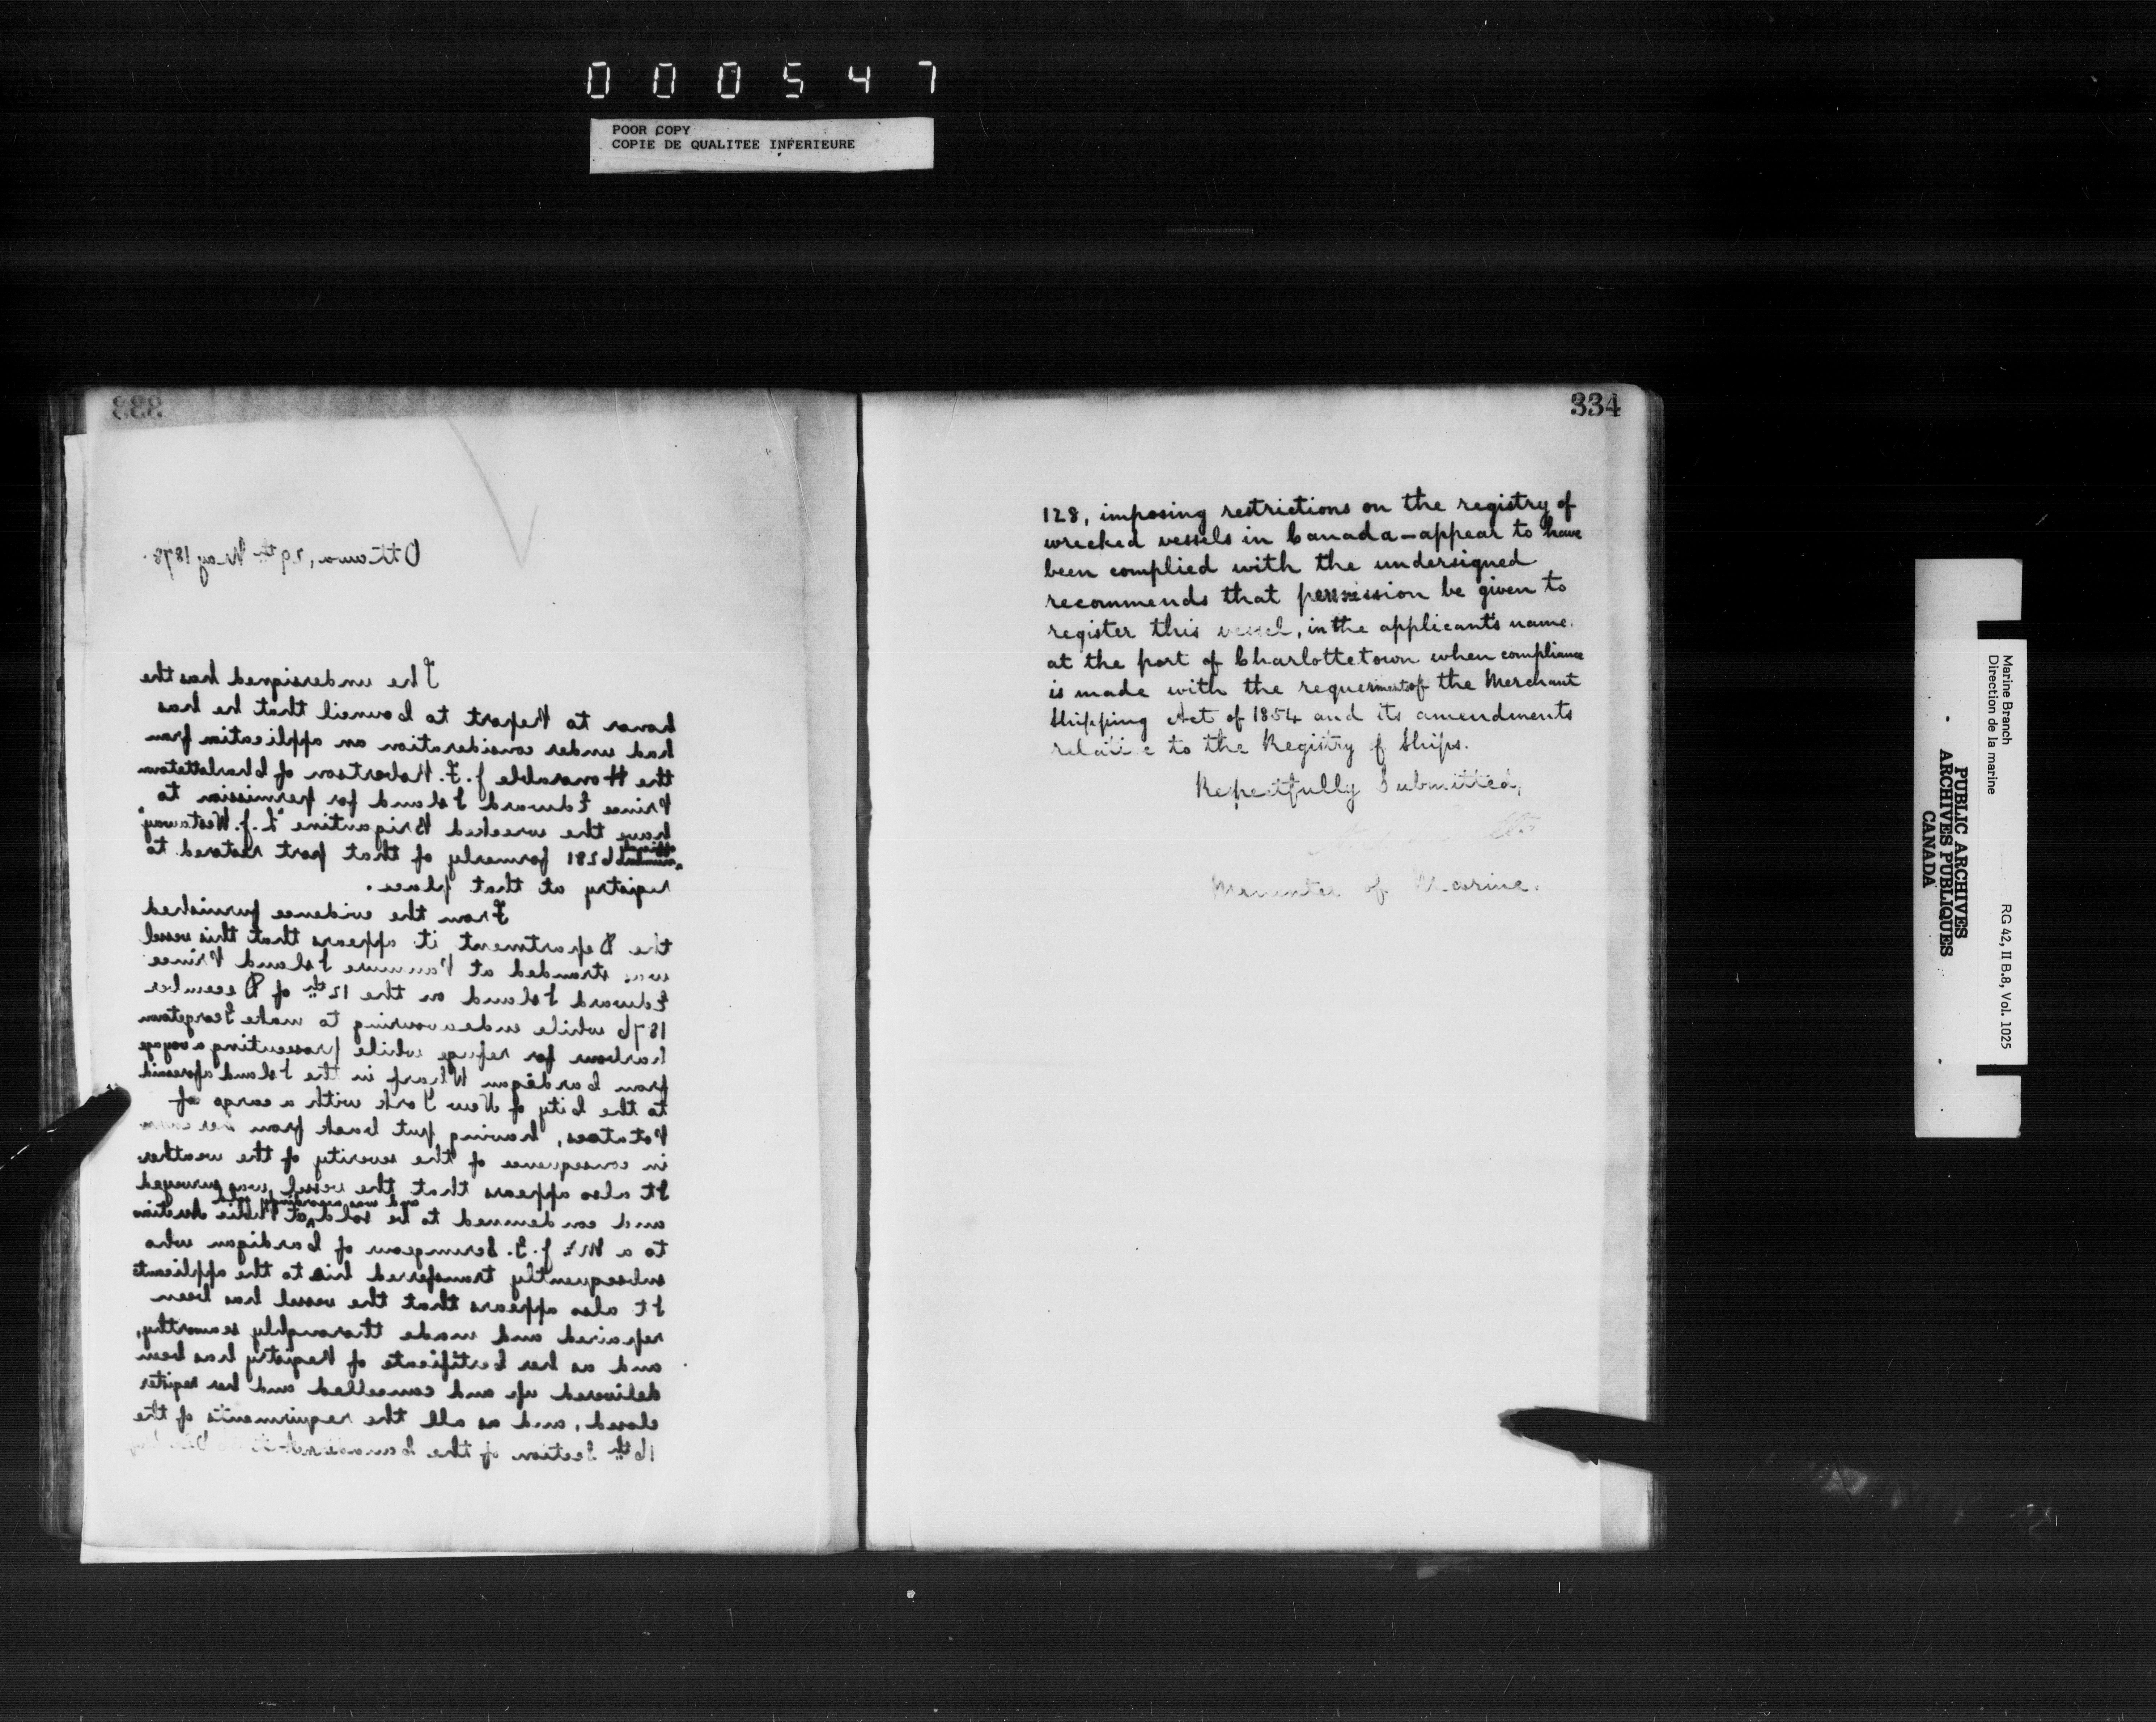 000547
POOR COPY
COPIE DE QUALITEE INFERIEURE
333
Ottawa, 29th May 1878.
The undersigned has the
honor to Report to Council that he has
had under consideration an application from
the Honorable J. F. Robertson of Charlottetown
Prince Edward Island for permission to
have the wrecked Brigantine "L. J. Westaway"
official
number 6281 formerly of that port restored to
registry at that place.
From the evidence furnished
the Department it appears that this vessel
was stranded at Panmure Island Prince
Edward Island on the 12th of December
1876 while endeavouring to make Georgetown
harbour for refuge while prosecuting a voyage
from Cardigan Wharf in the Island aforesaid
to the City of New York with a cargo of
Potatoes, having put back from her
in consequence of the severity of the weather
It also appears that the vessel was surveyed
and was accordingly sold
and condemned to be sold at Public Auction
to a Mr. J. G. Scrimgeour of Cardigan who
subsequently transferred his to the applicants
It also appears that the vessel has been
repaired and made thoroughly seaworthy,
and as her Certificate of Registry has been
delivered up and cancelled and her register
closed, and as all the requirments of the
16th Section of the Canadian
334
128, imposing restrictions on the registry of
wrecked vessels in Canada – appear to have
been complied with the undersigned
recommends that permission be given to
register this vessel, in the applicants name.
at the port of Charlottetown when compliance
is made with the requerments of the Merchant
Shipping Act of 1854 and its amendments
relative to the Registry of Ships.
Respectfully Submitted,
of Marine.
Marine Branch
Direction de la marine
RG 42, II B.8, Vol. 1025
PUBLIC ARCHIVES
ARCHIVES PUBLIQUES
CANADA